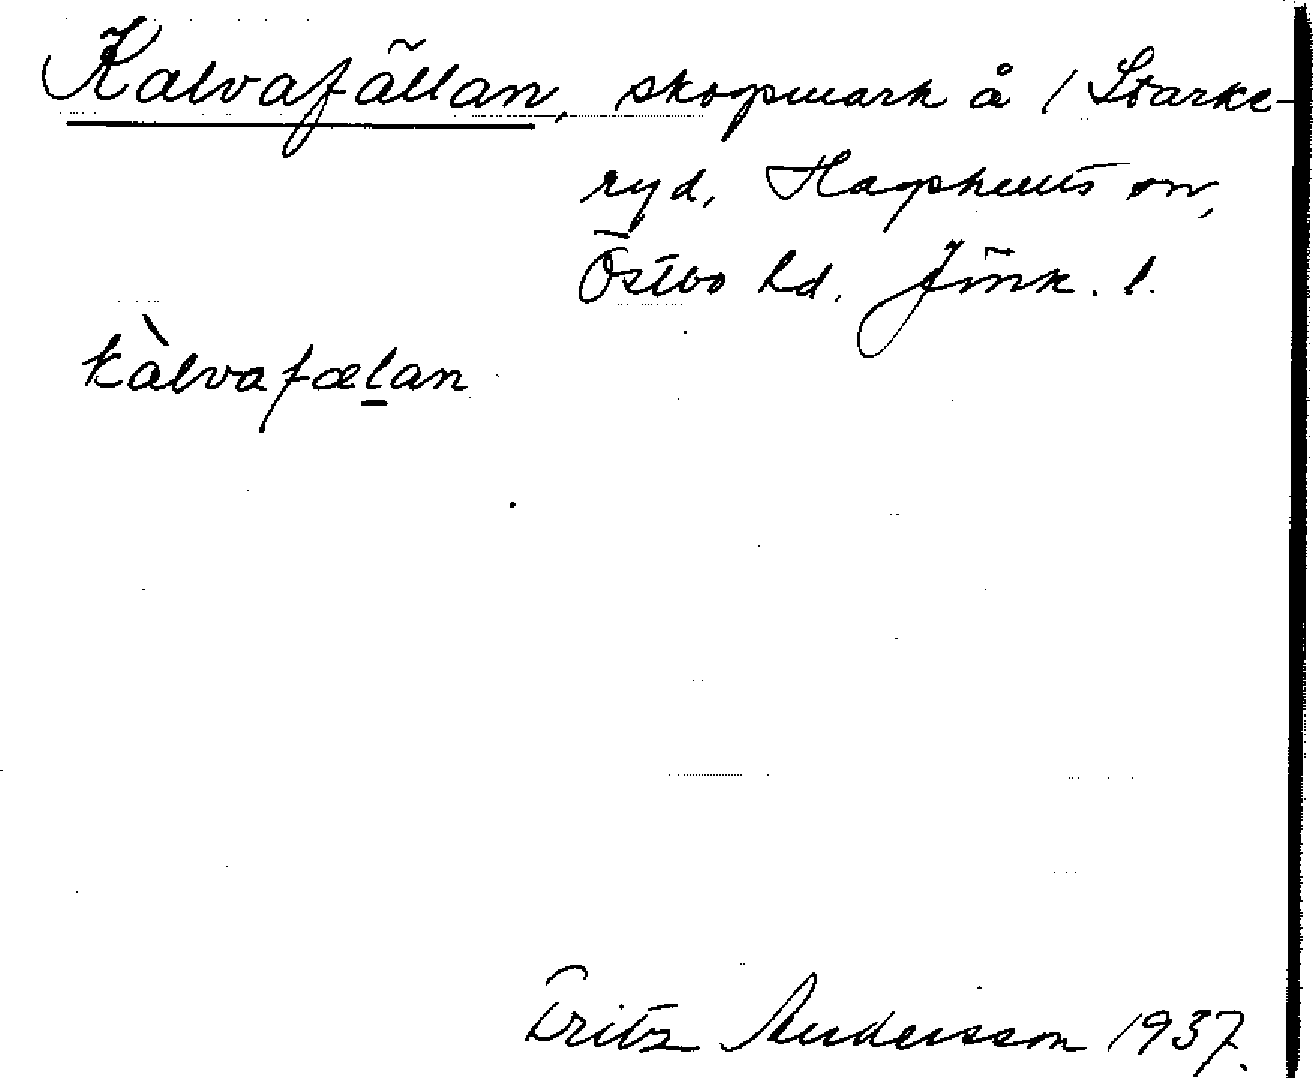 Kalvafällan, skogsmark å / Starke-
ryd, Hagshults sn,
Östbo hd. Jönk. l.
kàlvafælan
Fritz Andersson 1937.